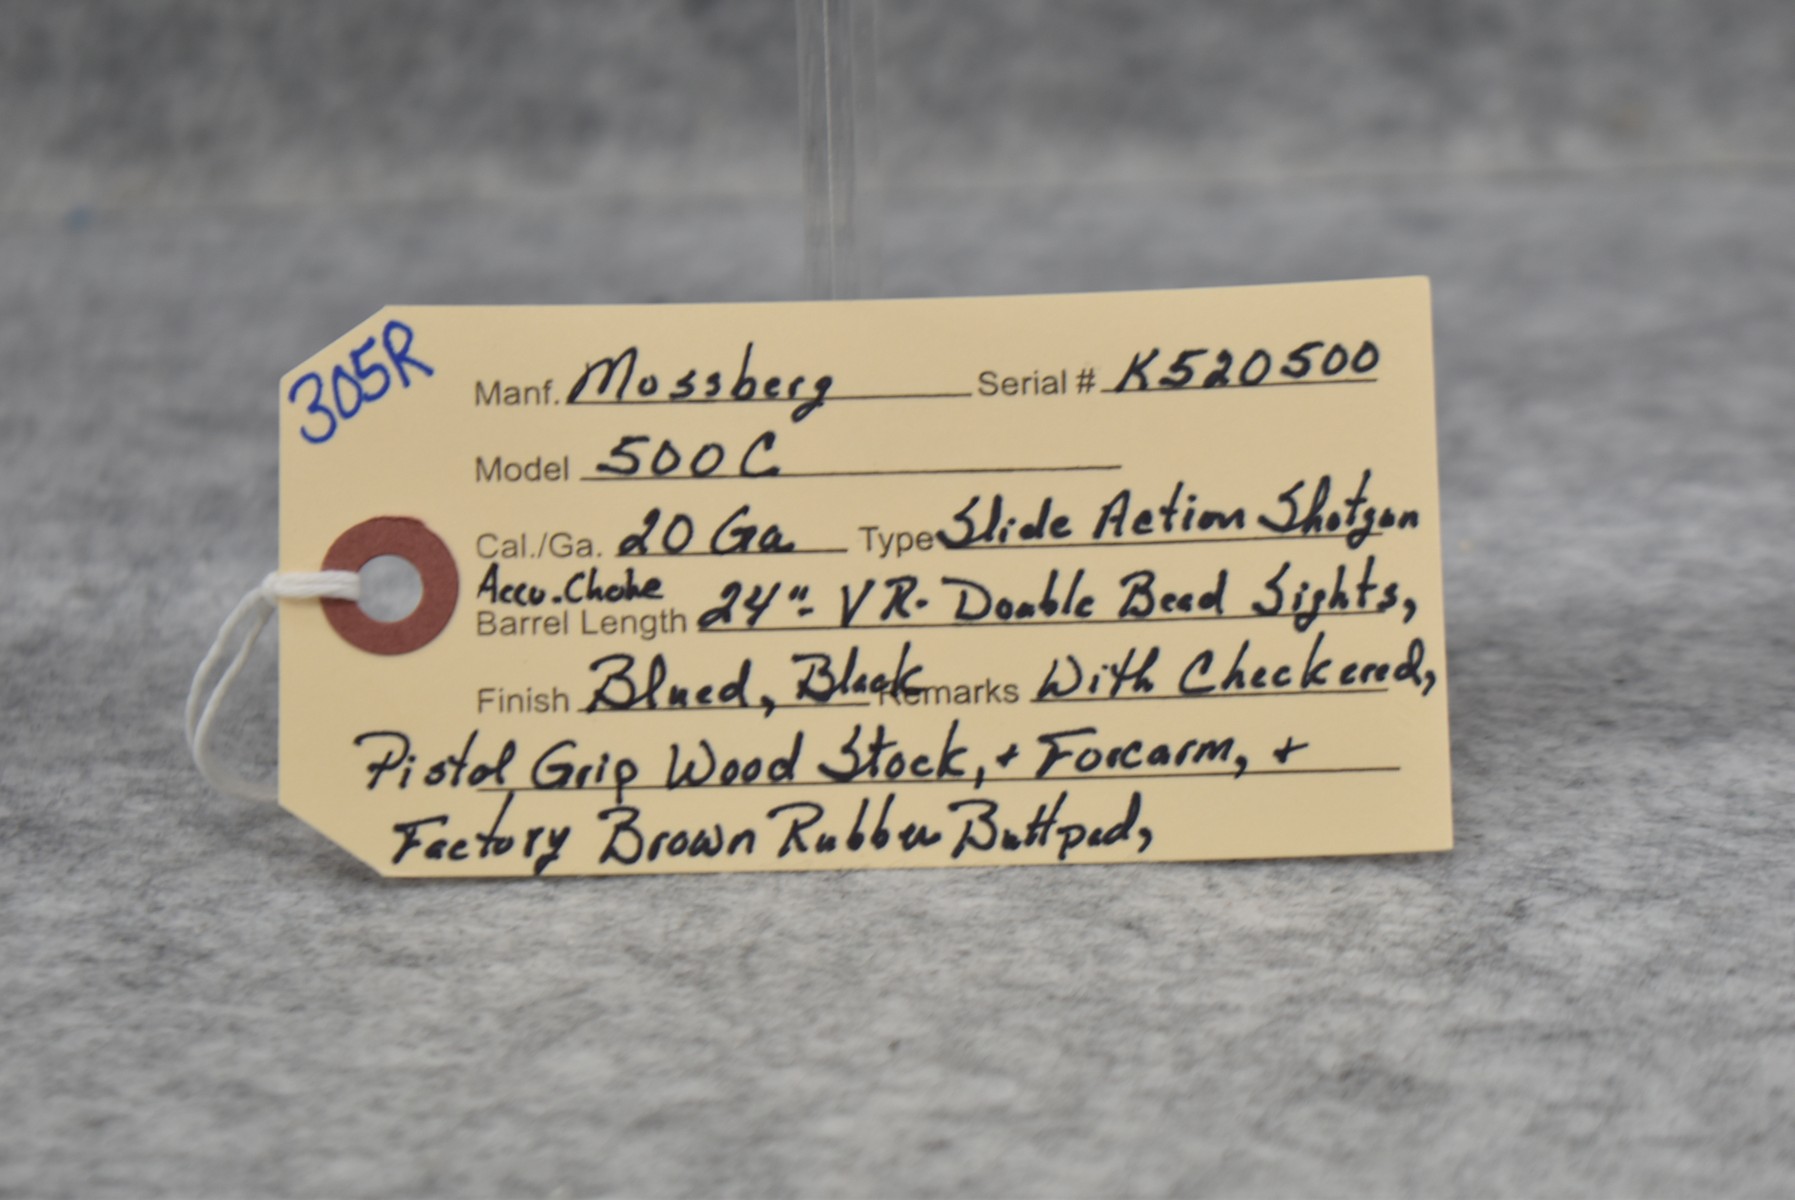 305R
Manf. Mossberg Serial # K520500
Model 500C
Cal./Ga. 20 Ga Type Slide Action Shotgun
Accu-Choke
Barrel Length 24"- VR- Double Bead Sights,
Finish Blued, Black Remarks With Checkered,
Pistol Grip Wood Stock, + Forearm, +
Factory Brown Rubber Buttpad,